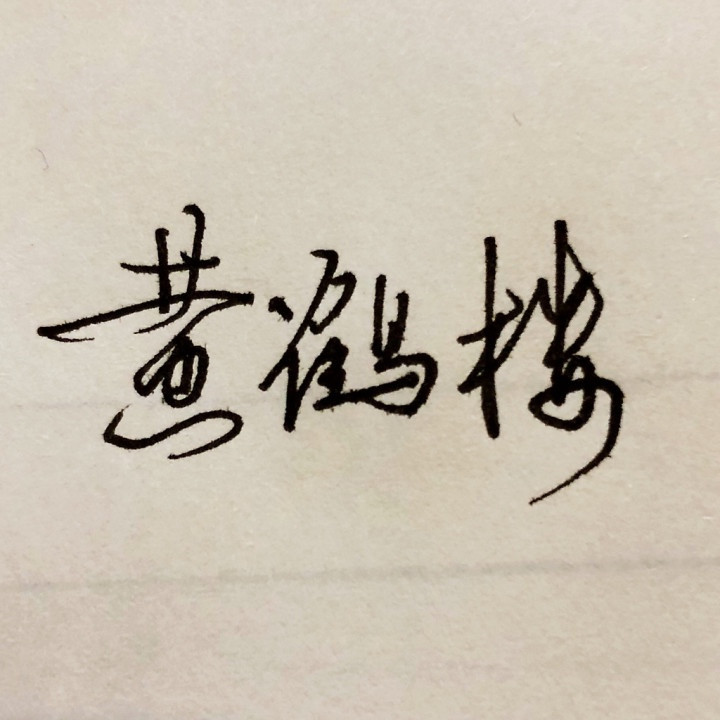 黄鹤楼